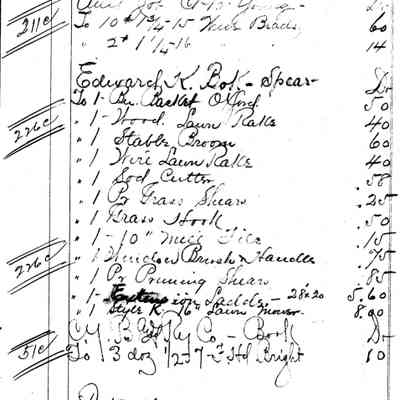 211c To 10# 1 3/4-15 Wire Brads 60
" 2# 1 1/4-16 14
Edward K. Bok - Spear - Dr
To 1 - Bu. Basket Oxford 50
226c " 1 - Wood. Lawn Rake 40
" 1 Stable Broom 60
" 1 Wire Lawn Rake 40
" 1 Sod Cutter 58
" 1 Pr Grass Shears .25
" 1 Grass Hook .50
" 1 - 10" Mill File .15
" 1 Window Brush & Handle .75
226c " 1 Pr Pruning Shears .85
" 1 - Extension Ladder - 28 x 20 5.60
" 1 Style K. 16" Lawn Mower. 8.00
Ry Co - Book Dr
51c To 3 doz Bright 10